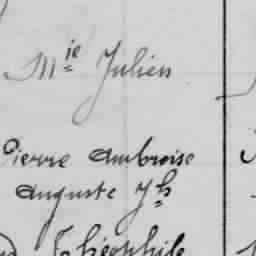 Mie Julien
Pierre Ambroise
Auguste Jh
Théophile